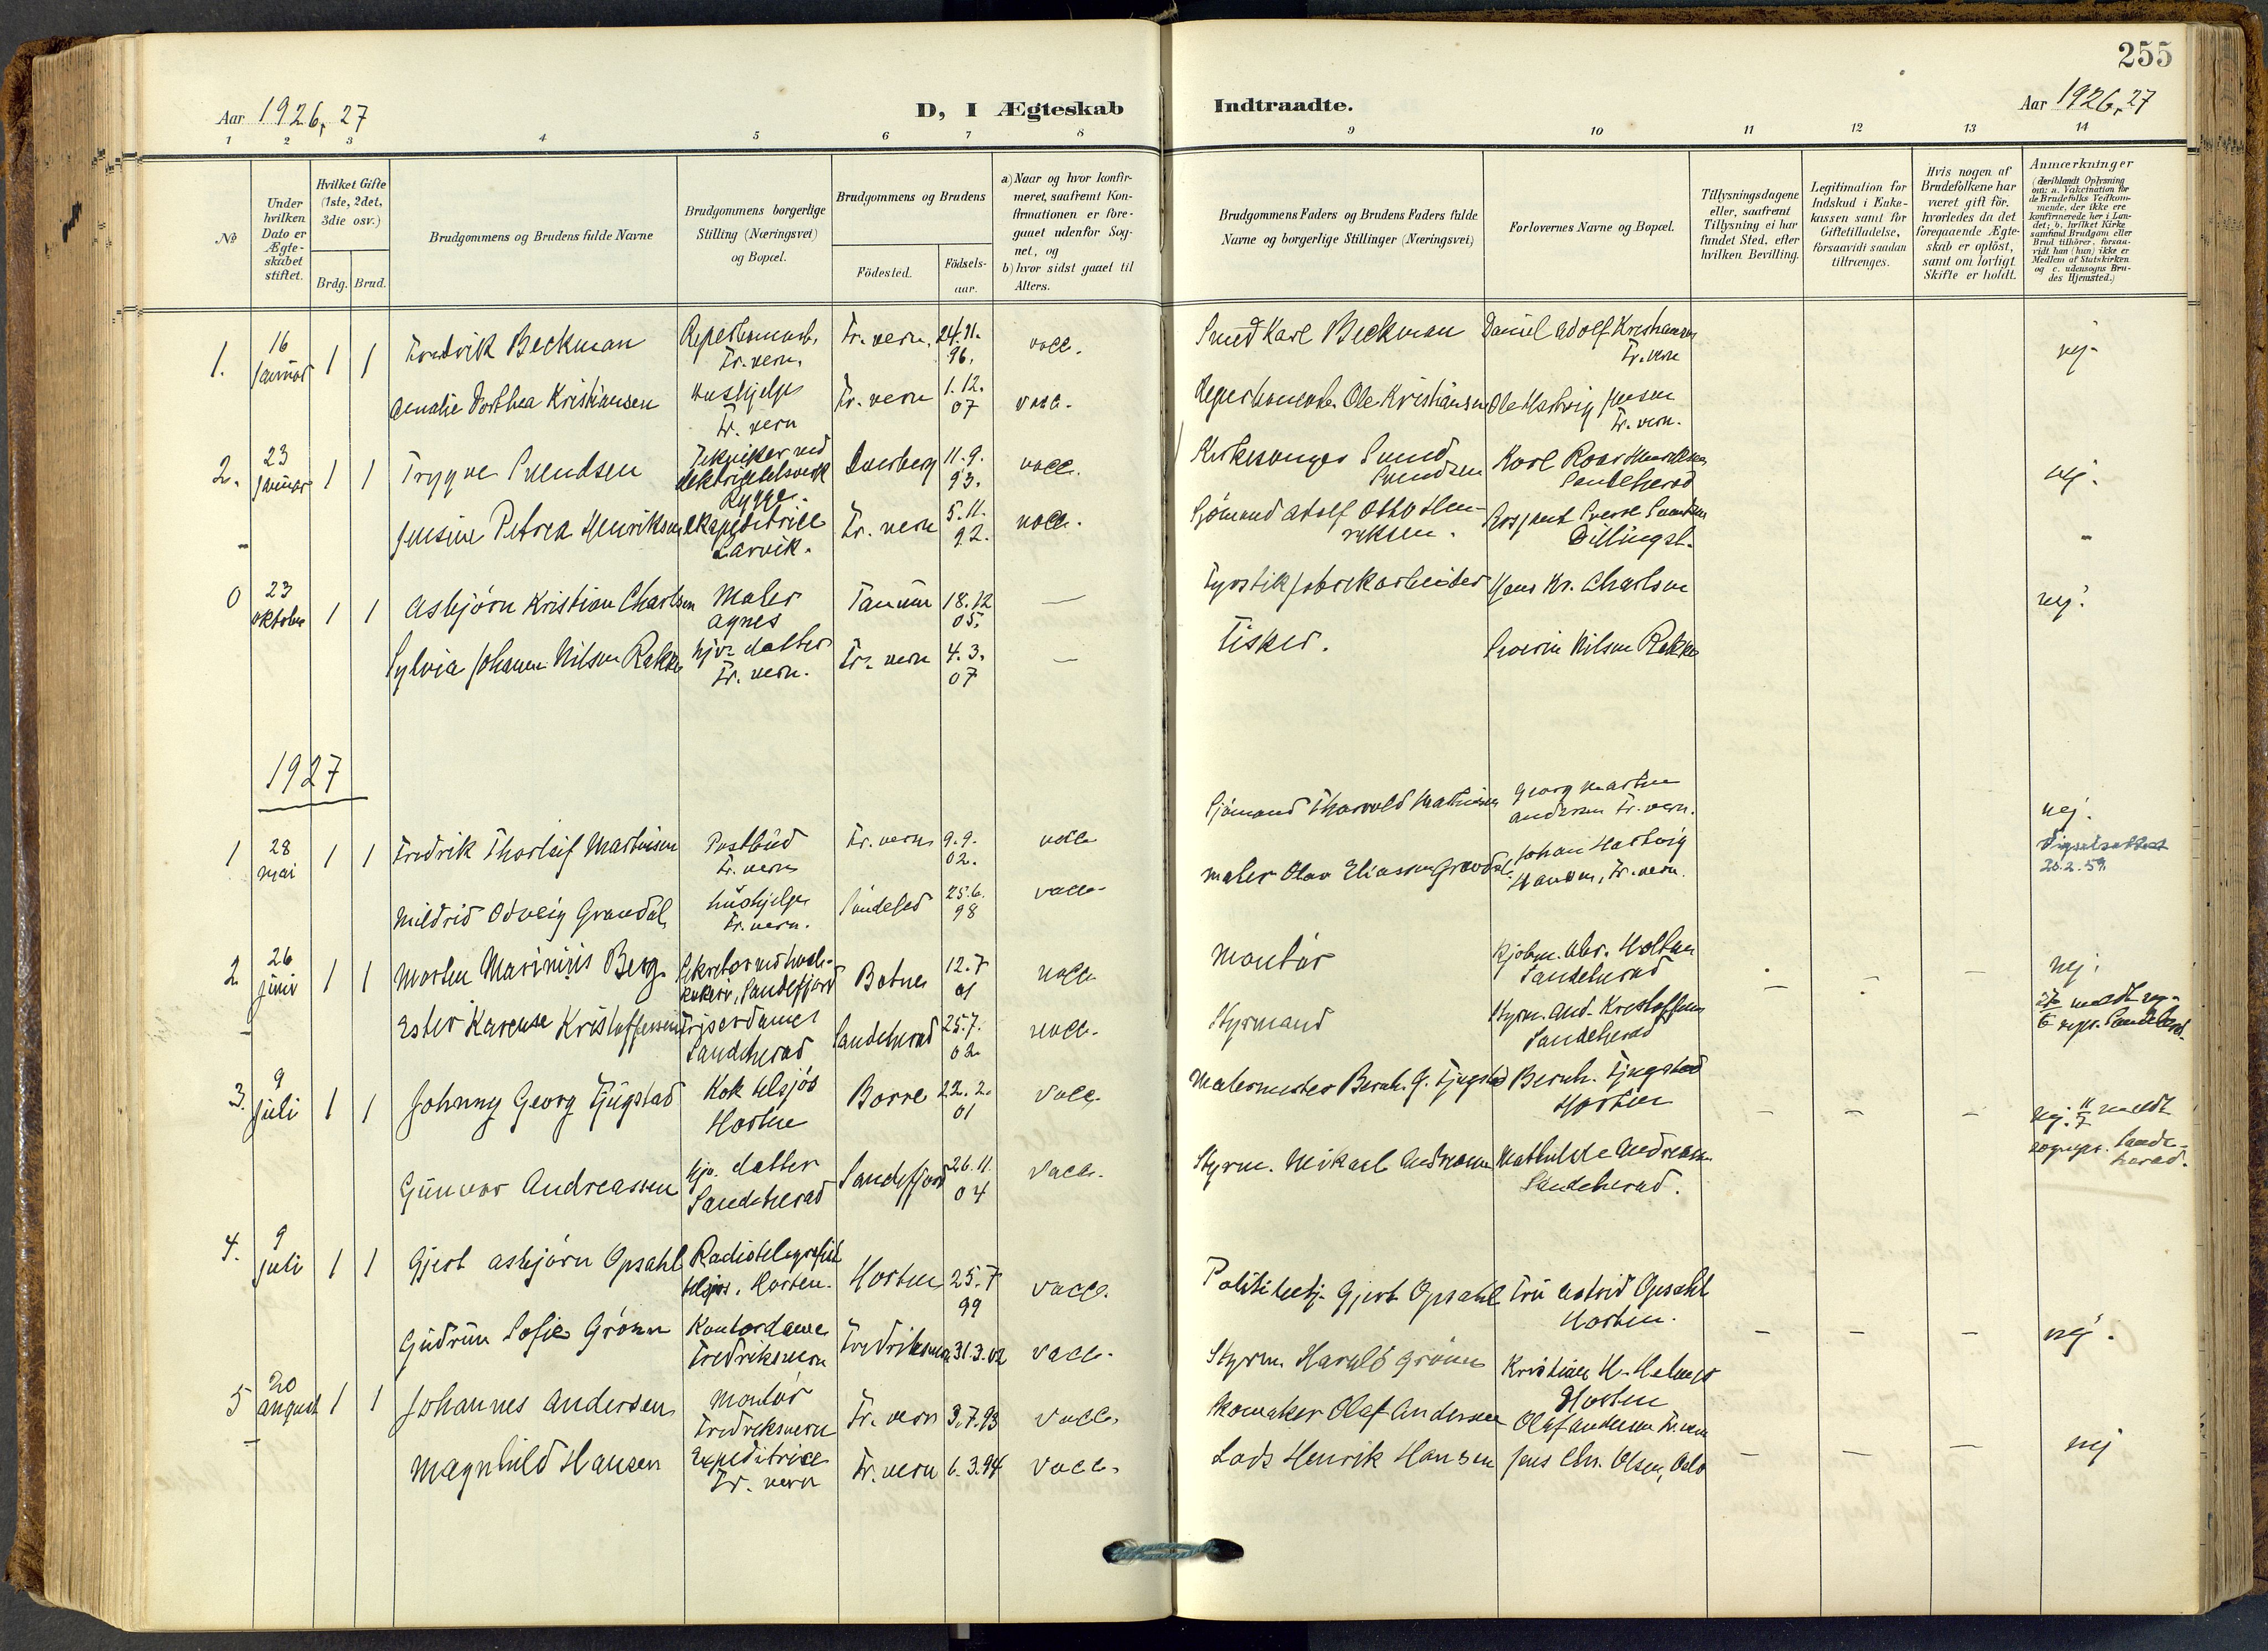 255
Aar 1926, 27
D, I Ægteskab Indtraadte.
Aar 1926, 27
1 2 3 4 5 6 7 8 9 10 11 12 13 14
No
Under hvilken Dato er Ægteskabet stiftet.
Hvilket Gifte (1ste, 2det, 3die osv.)
Brdg. Brud.
Brudgommens og Brudens fulde Navne
Brudgommens borgerlige Stilling (Næringsvei) og Bopæl.
Brudgommens og Brudens
Födested. Födsels-aar.
a) Naar og hvor konfirmeret, saafremt Konfirmationen er foregaaet udenfor Sognet, og
b) hvor sidst gaaet til Alters.
Brudgommens Faders og Brudens Faders fulde Navne og borgerlige Stillinger (Næringsvei)
Forlovernes Navne og Bopæl.
Tillysningsdagene eller, saafremt Tillysning ei har fundet Sted, efter hvilken Bevilling.
Legitimation for Indskud i Enkekassen samt for Giftetilladelse, forsaavidt saadan tiltrænges.
Hvis nogen af Brudefolkene har været gift för, hvorledes da det foregaaende Ægteskab er oplöst, samt om lovligt Skifte er holdt.
Anmærkninger
(deriblandt Oplysning om: a. Vakcination for de Brudefolks Vedkommende, der ikke ere konfirmerede her i Landet; b. hvilket Kirkesamfund Brudgom eller Brud tilhörer, forsaavidt han (hun) ikke er Medlem af Statskirken og c. udensogns Brudes Hjemsted.)
1. 16 Januar 1 1 Fredrik Beckman Fr. vern. Fr. vern. 24.11. 96. vacc. Smed Karl Beckman Daniel Adolf Kristiansen Fr. vern nej.
Amalie Dorthea Kristiansen Hushjelp Fr. vern Fr. vern 1.12. 07 vacc. Ole Kristiansen Ole Hartvig Jensen Fr. vern.
2. 23 Januar 1 1 Trygve Svendsen Tekniker ved elektrisitetsverk Rygge. 11.9. 93. vacc. Kirkesanger Svend Svendsen Karl Roar Henriksen Sandeherad nej.
Jensine Petrea Henriksen ekspeditrice Larvik. Fr. vern 5.11. 92. vacc. Sjömand Adolf Otto Henriksen. Sverre Svendsen Dillingst. -
0 23 Oktober 1 1 Asbjörn Kristian Charlsen Maler Agnes Tanum 18.12 05. — Fyrstikfabrikarbeider Hans Kr. Charlsen nej.
Sylvia Johanne Nilsen Rakke hjv. datter Fr. vern. Fr. vern 4.3. 07 — Fisker. Severin Nilsen Rakke
1927
1 28 mai 1 1 Fredrik Thorleif Martinsen Postbud Fr. vern Fr. vern 9.9. 02. vacc Sjömand Thorvald Mathisen Georg Martin Andersen Fr. vern. nej.
Vigselsattest 20.2.59.
Mildrid Odveig Grandal hushjelp Fr. vern. Sandefjd 25.6. 98 vacc. maler Olav Eliassen Grandal. Johan Hartvig Hansen, Fr. vern.
2 26 juni 1 1 Morten Marinius Berg Sandefjord Botne 12.7 01 vacc Montör Kjöbm. Abr. Holtan Sandeherad nej.
Ester Karense Kristoffersen Friserdame Sandeherad Sandeherad 25.7. 02. vacc. Styrmand Styrm. And. Kristoffersen Sandeherad
3. 9 juli 1 1 Johnny Georg Fjugstad Kok tilsjös Horten Borre 22.2. 01 vacc. Malermester Bernh. G. Fjugstad Bernh. Fjugstad Horten — — — nej. 11/7 meldt sognepr. Sandeherad.
Gunvor Andreassen hjv. datter Sandeherad Sandefjord 26.11. 04 vacc. Styrm. Mikael Andreassen Mathilde Andreassen Sandeherad.
4. 9 juli 1 1 Gjert Asbjörn Opsahl Radiotelegrafist tilsjös. Horten. Horten 25.7 99 vacc. Politibetj. Gjert Opsahl Fru Astrid Opsahl Horten. — — — nej.
Gudrun Sofie Grönn Kontordame Fredriksvern Fredriksvern 31.3.02 vacc. Styrm. Harald Grönn Kristian H. Helmer Horten
5 20 august 1 1 Johannes Andersen Montör Fredriksvern Fr. vern 3.7.93 vacc. Skomaker Olaf Andersen Olaf Andersen Fr. vern
Magnhild Hansen Expeditrice Fr. vern Fr. vern 6.3.94 vacc. Lods Henrik Hansen Jens Chr. Olsen, Oslo — — — nej